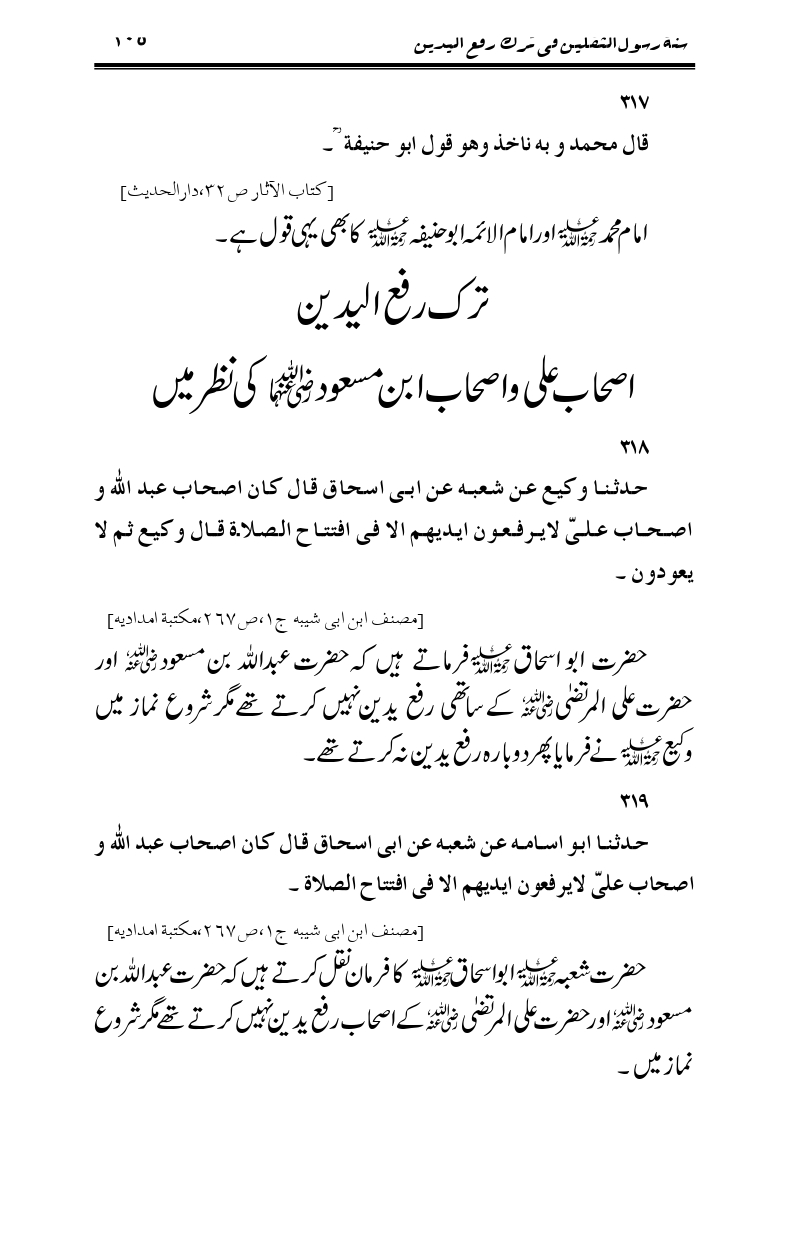 سنة رسول الثقلین فی ترک رفع الیدین ۱۰۵
۳۱۷
قال محمد و به ناخذ وهو قول ابو حنیفة ؒ۔
[کتاب الآثار ص۳۲،دارالحدیث]
امام محمد رحمۃ اللہ علیہ اور امام الائمہ ابوحنیفہ رحمۃ اللہ علیہ کا بھی یہی قول ہے۔
ترک رفع الیدین
اصحاب علی واصحاب ابن مسعود رضی اللہ عنہما کی نظر میں
۳۱۸
حدثنا وکیع عن شعبه عن ابی اسحاق قال کان اصحاب عبد الله و
اصحاب علیّ لایرفعون ایدیهم الا فی افتتاح الصلاة قال وکیع ثم لا
یعودون ۔
[مصنف ابن ابی شیبه ج۱،ص۲۶۷،مکتبة امدادیه]
حضرت ابو اسحاق رحمۃ اللہ علیہ فرماتے ہیں کہ حضرت عبداللہ بن مسعود رضی اللہ عنہ اور
حضرت علی المرتضیٰ رضی اللہ عنہ کے ساتھی رفع یدین نہیں کرتے تھے مگر شروع نماز میں
وکیع رحمۃ اللہ علیہ نے فرمایا پھر دوبارہ رفع یدین نہ کرتے تھے۔
۳۱۹
حدثنا ابو اسامه عن شعبه عن ابی اسحاق قال کان اصحاب عبد الله و
اصحاب علیّ لایرفعون ایدیهم الا فی افتتاح الصلاة ۔
[مصنف ابن ابی شیبه ج۱،ص۲۶۷،مکتبة امدادیه]
حضرت شعبہ رحمۃ اللہ علیہ ابواسحاق رحمۃ اللہ علیہ کا فرمان نقل کرتے ہیں کہ حضرت عبداللہ بن
مسعود رضی اللہ عنہ اور حضرت علی المرتضیٰ رضی اللہ عنہ کے اصحاب رفع یدین نہیں کرتے تھے مگر شروع
نماز میں ۔